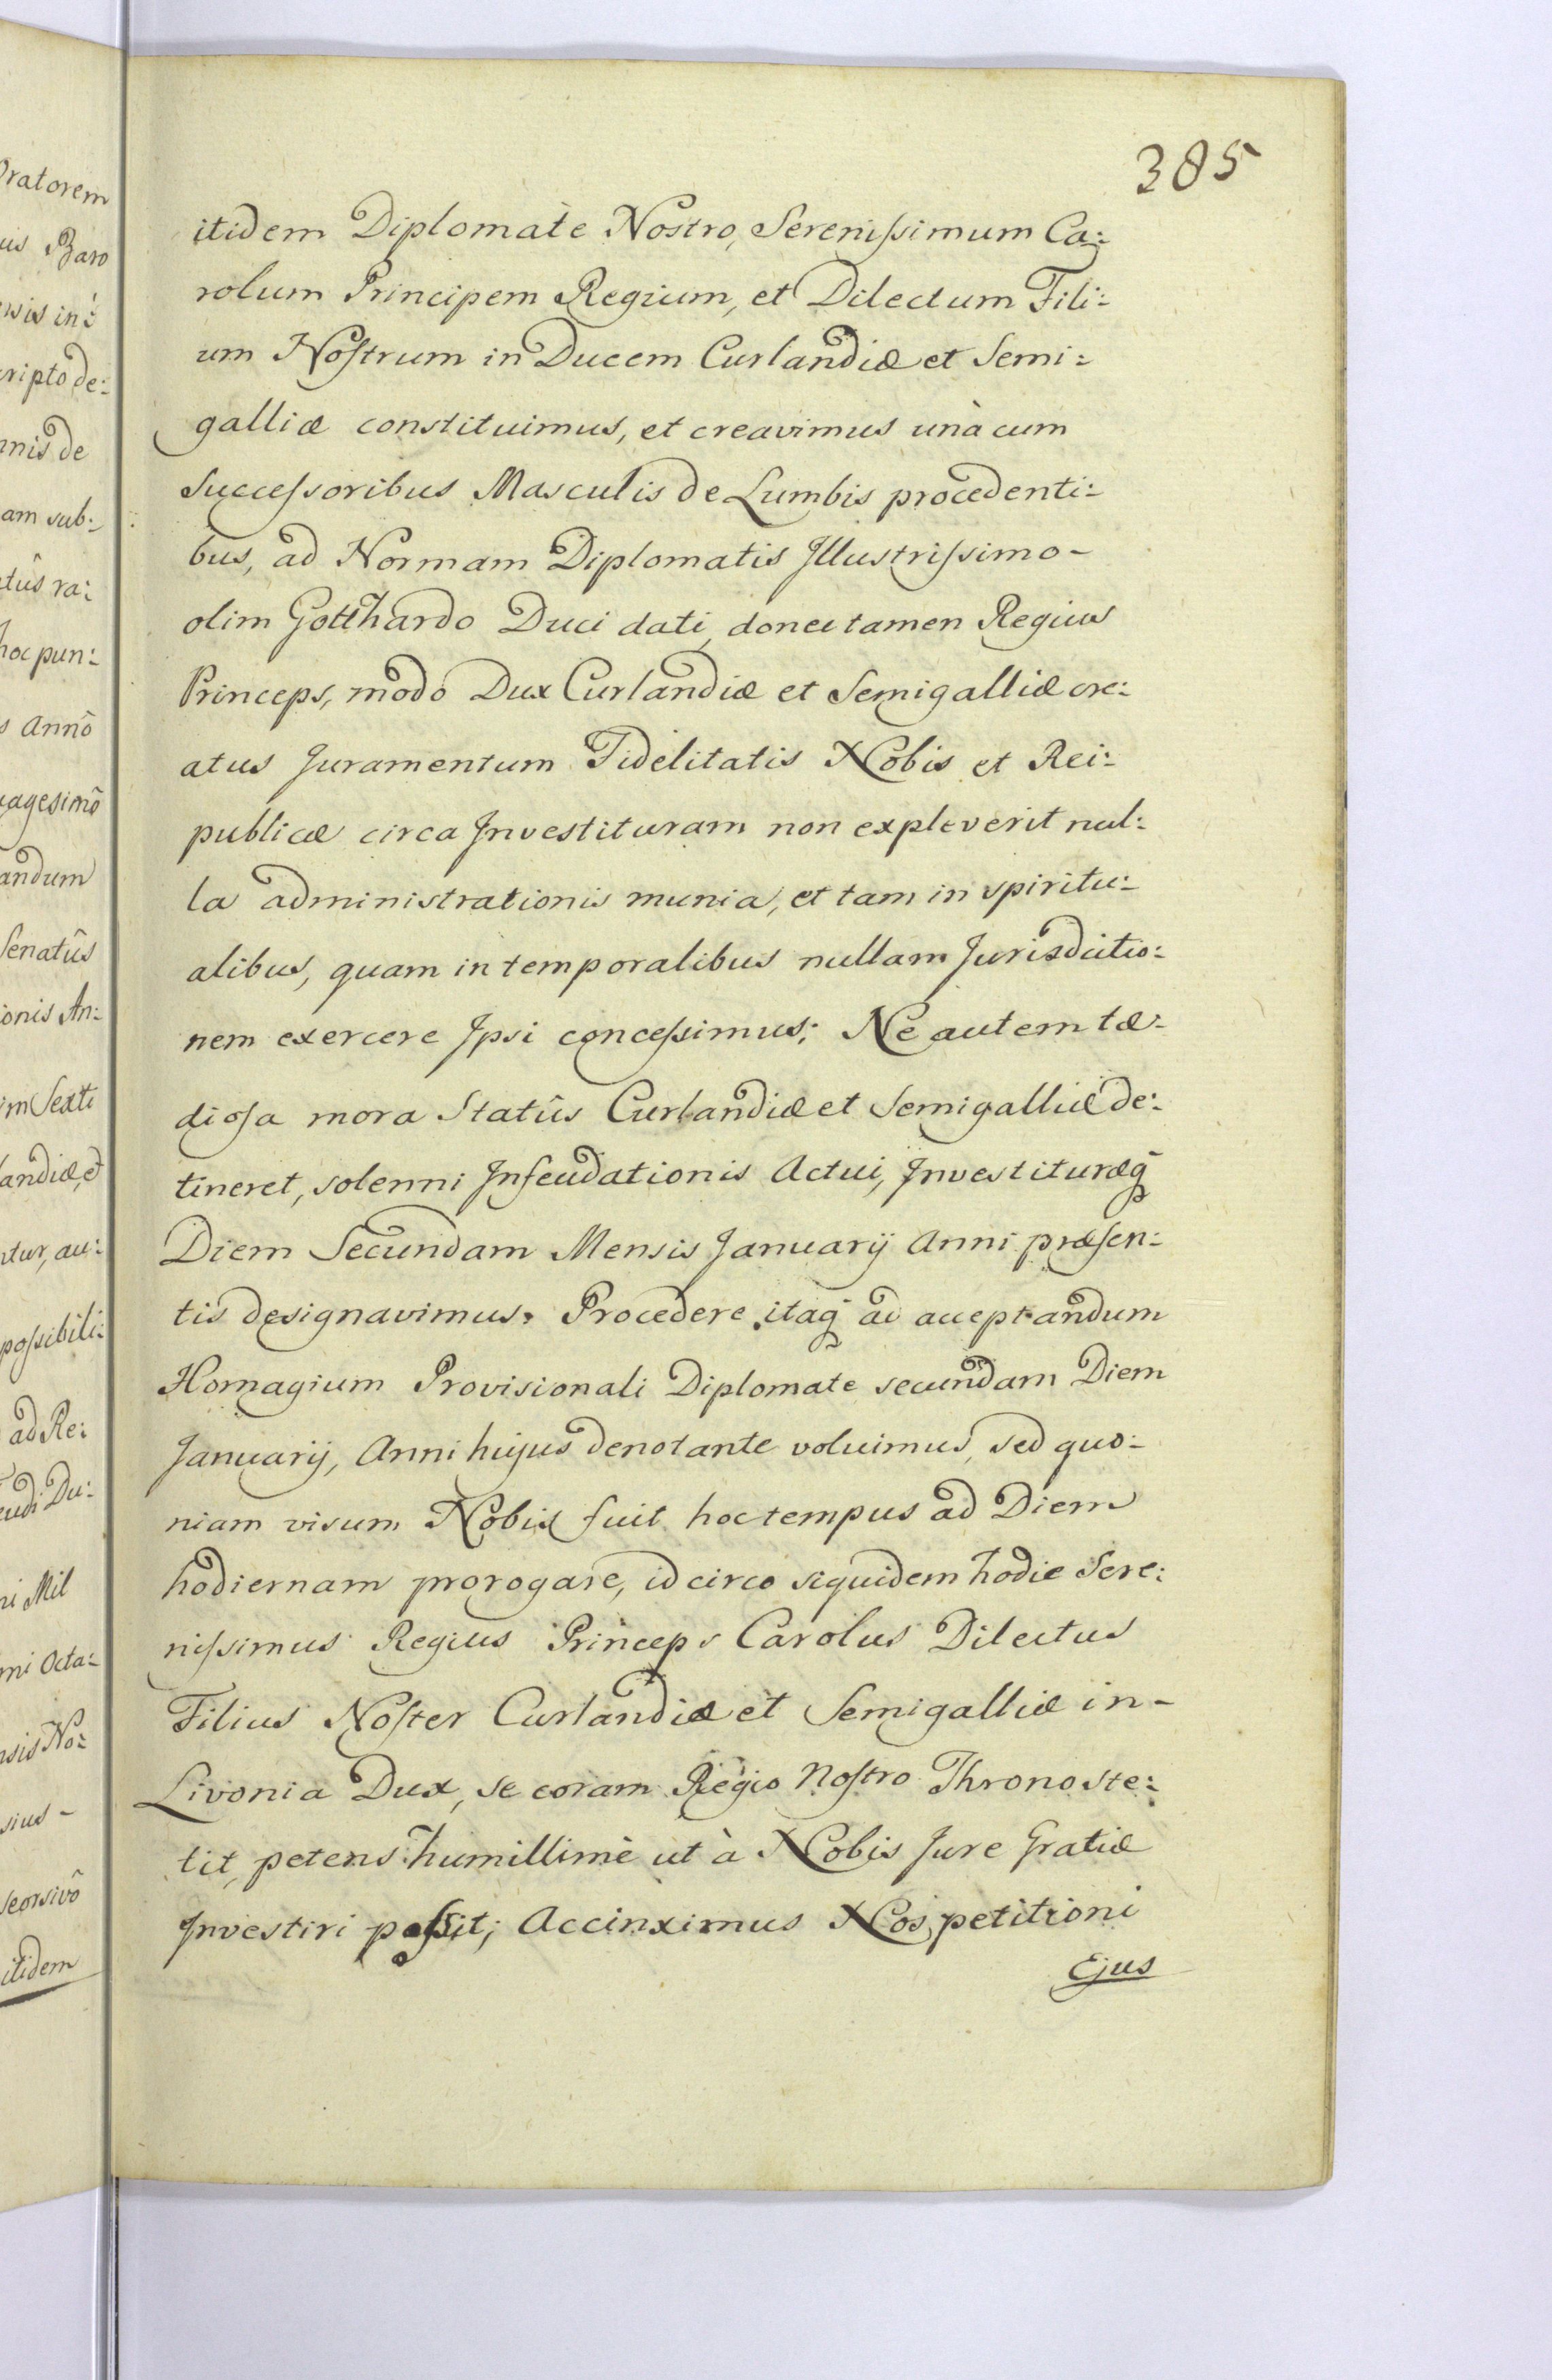 385
itidem Diplomate Nostro, Sereniſsimum Ca:
rolum Principem Regium, et Dilectum Fili:
um Noſtrum in Ducem Curlandiæ et Semi:
galliæ constituimus, et creavimus unà cum
Succeſsoribus Masculis de Lumbis procedenti:
bus, ad Normam Diplomatis Illustriſsimo-
olim Gotthardo Duci dati, donec tamen Regius
Princeps, modo Dux Curlandiæ et Semigalliæ cre:
atus Juramentum Fidelitatis Nobis et Rei:
publicæ circa Investituram non expleverit nul:
la administrationis munia, et tam in spiritu:
alibus, quam in temporalibus nullam Jurisdictio:
nem exercere Ipsi conceſsimus; Ne autem tæ:
dioſa mora Statûs Curlandiæ et Semigalliæ de:
tineret, solenni Infeudationis Actui, Investituræq̃
Diem Secundam Mensis Januarij Anni præſen:
tis designavimus. Procedere itaq̃ ad acceptandum
Homagium Provisionali Diplomate secundam Diem
Januarij, Anni hujus denotante voluimus, sed quo:
niam visum Nobis fuit hoc tempus ad Diem
hodiernam prorogare, idcirco siquidem hodie Sere:
niſsimus Regius Princeps Carolus Dilectus
Filius Noſter Curlandiæ et Semigalliæ in-
Livonia Dux, se coram Regio Noſtro Throno ste:
tit, petens humillimè ut à Nobis Jure Gratiæ
Investiri poſsit; Accinximus Nos petitioni
Ejus
Oratorem
Baro
cripto de:
de
am sub:
ra:
hoc pun:
Annô
andum
Senatûs
ionis An:
Sexti
landiæ, et
ntur, au:
poſsibili:
ad Re:
Du:
Mil
Octa:
No:
seorsivô
itidem